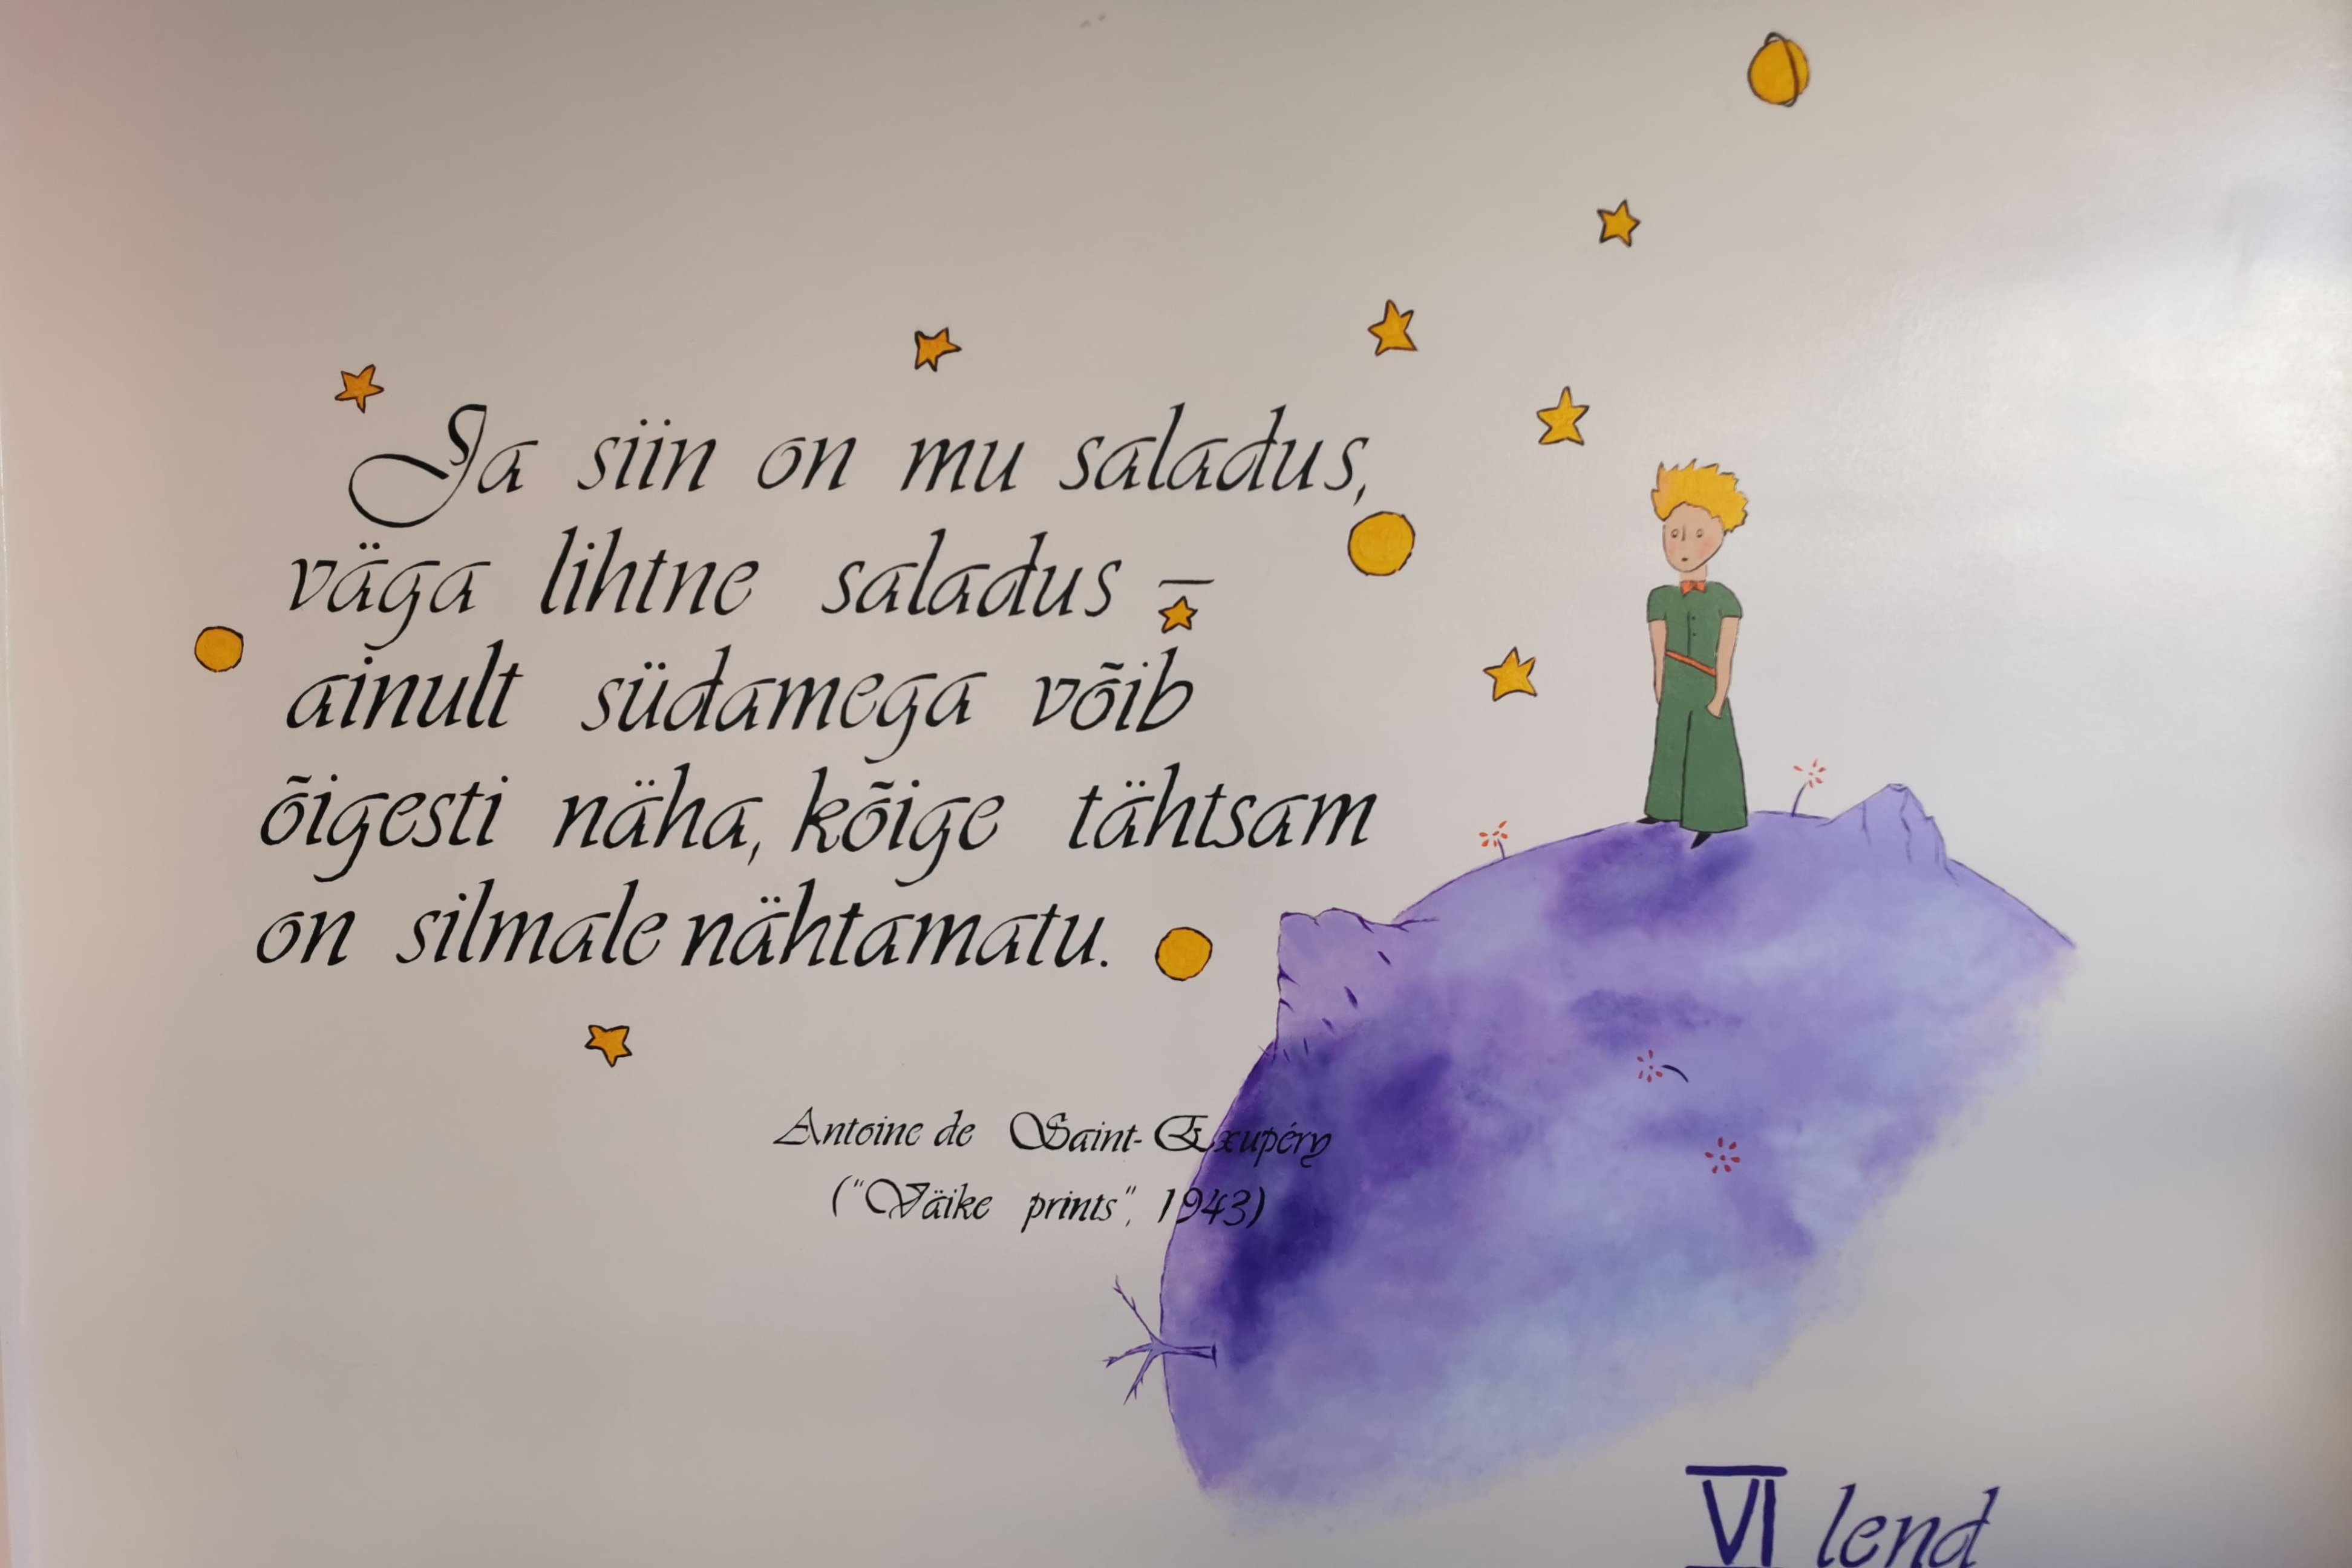 Ja siin on mu saladus,
väga lihtne saladus –
ainult südamega võib
õigesti näha, kõige tähtsam
on silmale nähtamatu.
Antoine de Saint-Exupéry
("Väike prints", 1943)
VI lend